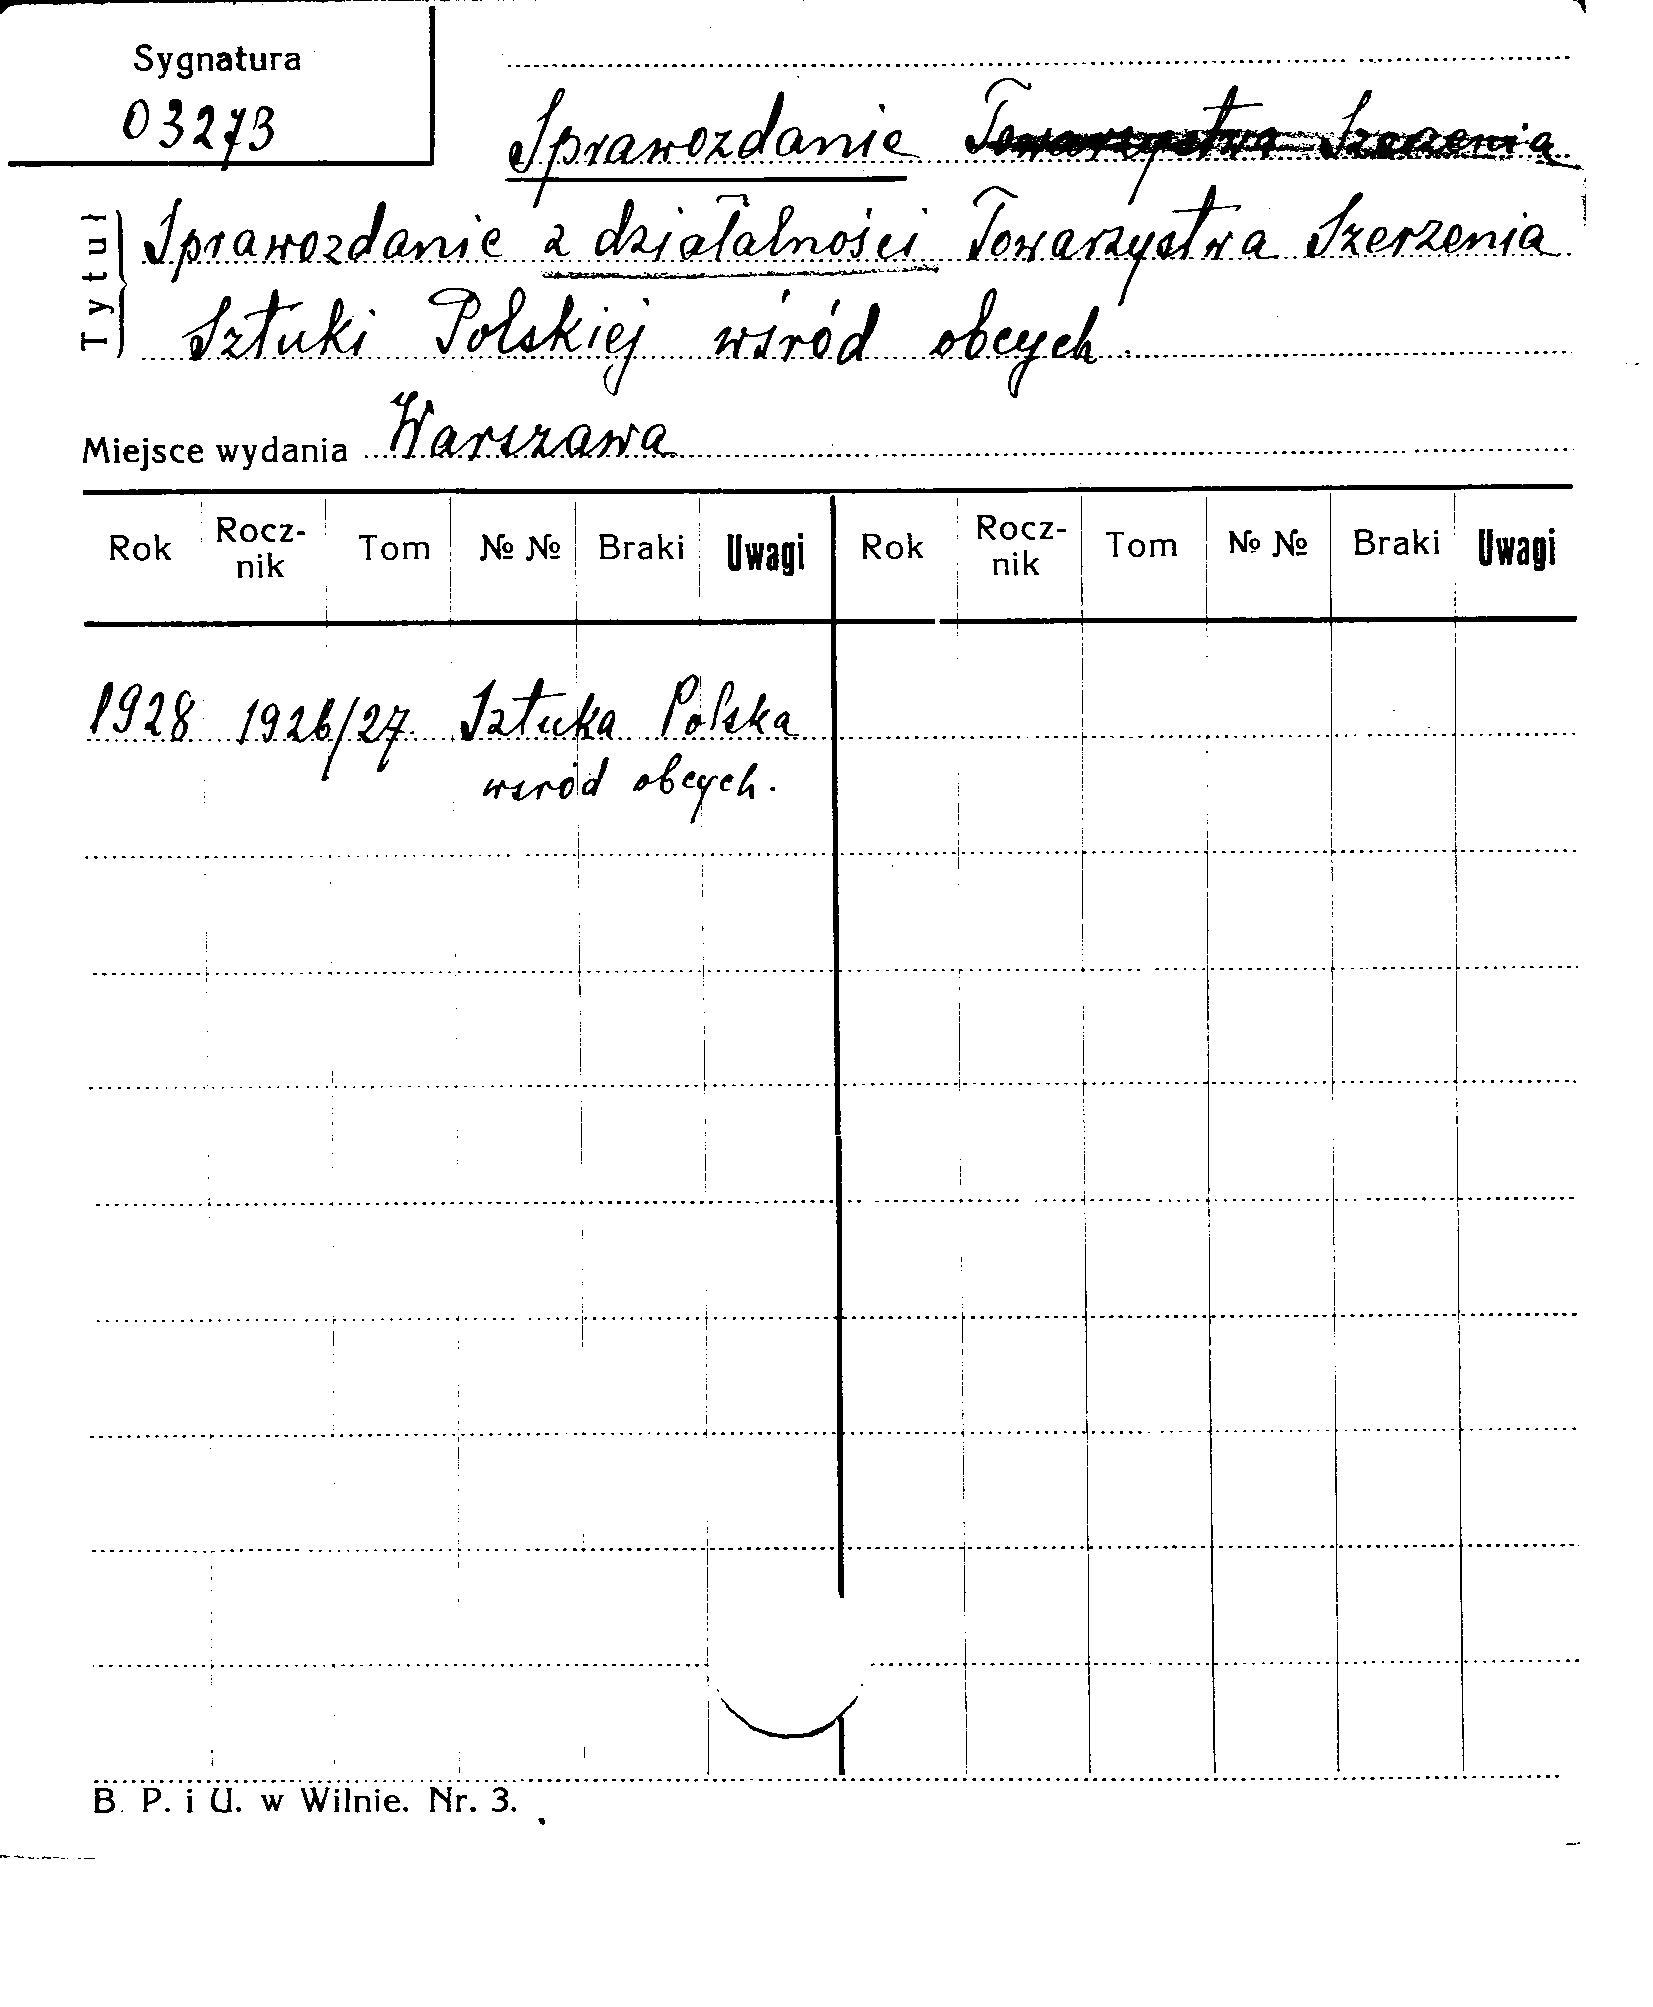 Sygnatura
03273
Sprawozdanie Towarzystwa Szerzenia
Tytuł
Sprawozdanie z działalności Towarzystwa Szerzenia
Sztuki Polskiej wśród obcych.
Miejsce wydania Warszawa
Rok Rocz-nik Tom №№ Braki Uwagi Rok Rocz-nik Tom №№ Braki Uwagi
1928 1926/27. Sztuka Polska
wsród obcych.
B. P. i U. w Wilnie. Nr. 3.